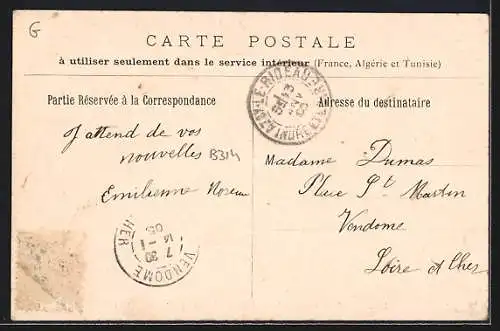 G
CARTE POSTALE
à utiliser seulement dans le service intérieur (France, Algérie et Tunisie)
Partie Réservée à la Correspondance
Adresse du destinataire
J'attend de vos
nouvelles B314
Emilienne Moreau
Madame Dumas
Place St Martin
Vendome
Loire et Cher
AZAY-LE-RIDEAU
INDRE ET
VENDOME
CHER
7 30
14 - 1
05